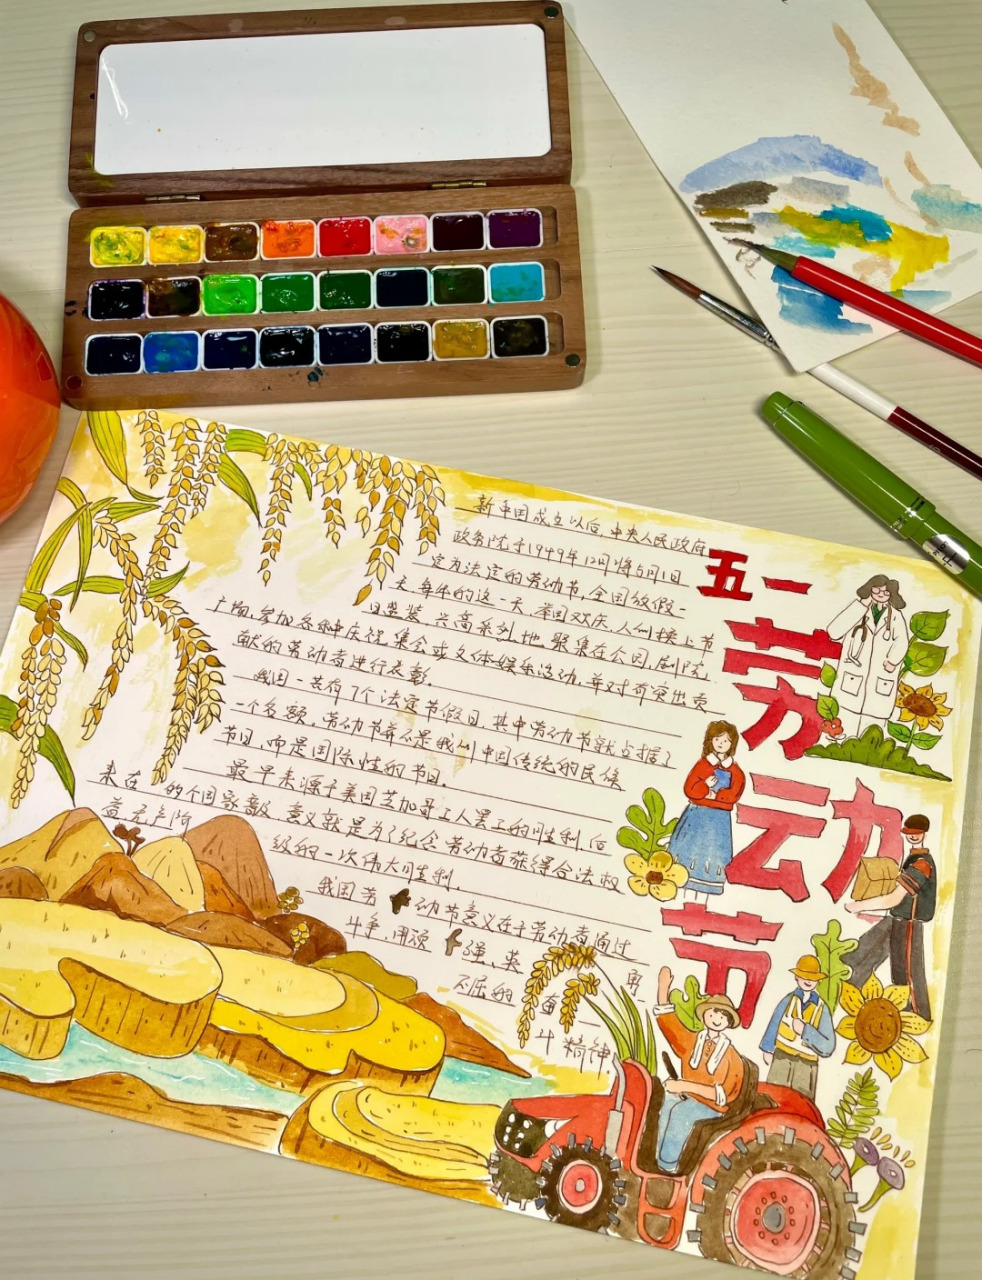 新中国成立以后,中央人民政府
政务院于1949年12月将5月1日
定为法定的劳动节,全国放假一
天.每年的这一天,举国欢庆,人们换上节
日盛装,兴高采列地聚集在公园,剧院,
广场,参加各种庆祝集会或文体娱乐活动,并对有突出贡
献的劳动者进行表彰.
我国一共有7个法定节假日,其中劳动节就占据了
一个名额,劳动节并不是我们中国传统的民俗
节日,而是国际性的节日.
最早来源于美国芝加哥工人罢工的胜利,后
来在 的个国家 意义就是为了纪念劳动者获得合法权
益无产阶
级的一次伟大胜利.
我国劳 动节意义在于劳动者通过
斗争,用顽 强、英 勇
不屈的 奋
斗精神
五一
劳
动
节